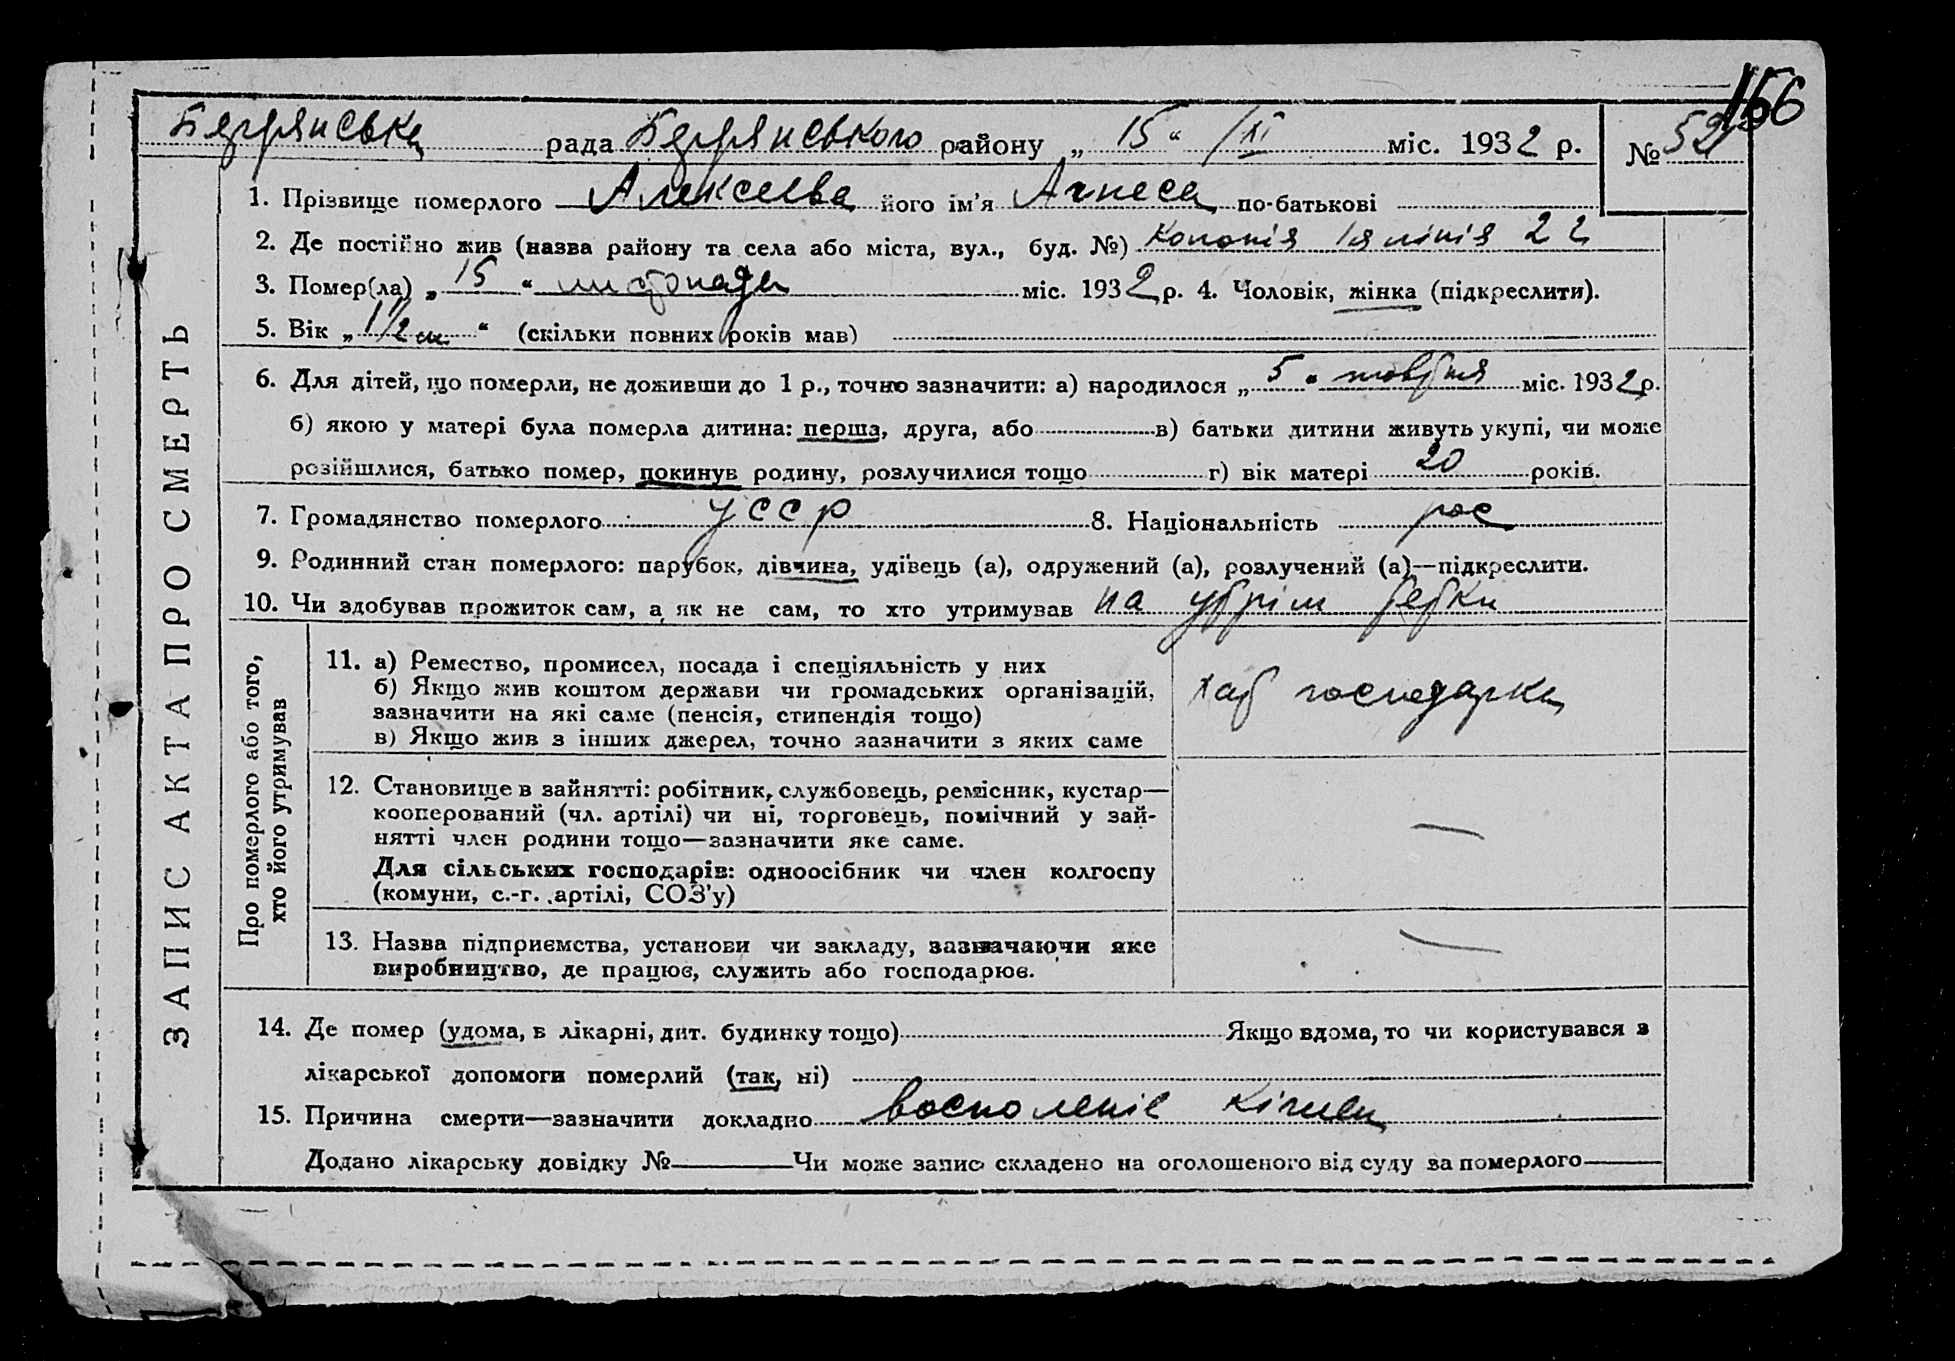 166
Бердянська рада Бердянського району „ 15 “ /XI міс. 1932 р. № 52
1. Прізвище померлого Алексеева його ім’я Агнеса по-батькові
2. Де постійно жив (назва району та села або міста, вул., буд. №) Колонія 1я лінія 22
3. Помер(ла) „ 15 “ листопада міс. 1932 р. 4. Чоловік, жінка (підкреслити).
5. Вік „ 1 1/2 м. “ (скільки повних років мав)
6. Для дітей, що померли, не доживши до 1 р., точно зазначити: а) народилося „ 5 “ жовтня міс. 1932 р.
б) якою у матері була померла дитина: перша, друга, або в) батьки дитини живуть укупі, чи може
розійшлися, батько помер, покинув родину, розлучилися тощо г) вік матері 20 років.
7. Громадянство померлого УССР 8. Національність рос
9. Родинний стан померлого: парубок, дівчина, удівець (а), одружений (а), розлучений (а)—підкреслити.
10. Чи здобував прожиток сам, а як не сам, то хто утримував на утрім
ЗАПИС АКТА ПРО СМЕРТЬ
Про померлого або того,
хто його утримував
11. а) Ремество, промисел, посада і спеціяльність у них
б) Якщо жив коштом держави чи громадських організацій,
зазначити на які саме (пенсія, стипендія тощо)
в) Якщо жив з інших джерел, точно зазначити з яких саме
господарка
12. Становище в зайнятті: робітник, службовець, ремісник, кустар—
кооперований (чл. артілі) чи ні, торговець, помічний у зай-
нятті член родини тощо—зазначити яке саме.
Для сільських господарів: одноосібник чи член колгоспу
(комуни, с.-г. артілі, СОЗ’у)
—
13. Назва підприємства, установи чи закладу, зазначаючи яке
виробництво, де працює, служить або господарює.
—
14. Де помер (удома, в лікарні, дит. будинку тощо) Якщо вдома, то чи користувався з
лікарської допомоги померлий (так, ні)
15. Причина смерти—зазначити докладно воспаленіе
Додано лікарську довідку № Чи може запис складено на оголошеного від суду за померлого